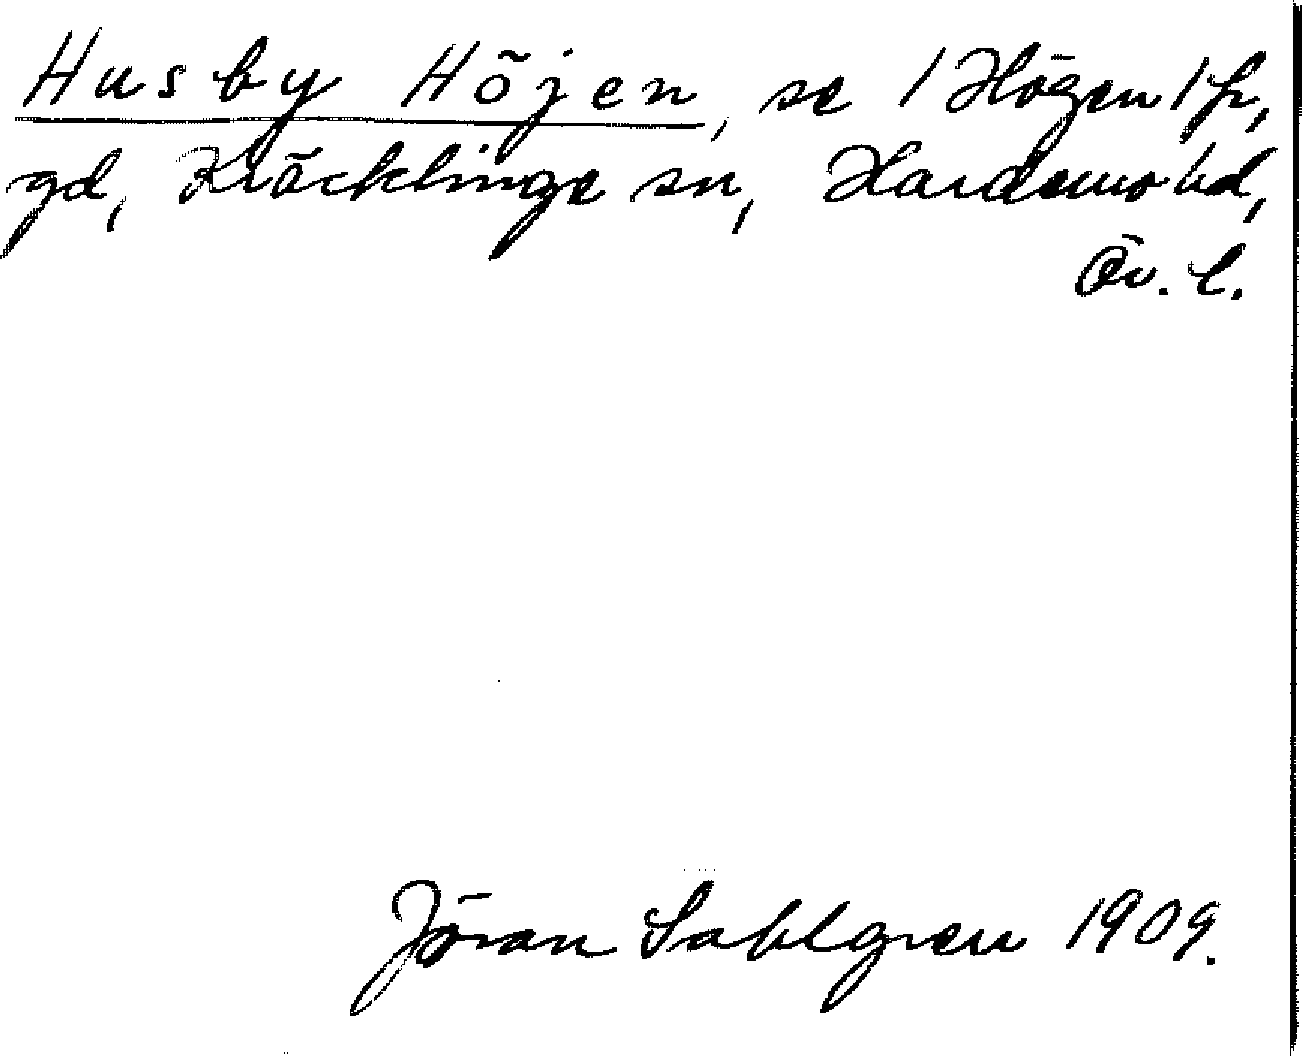 Husby Höjen, se /Högen/ fr,
gd, Kräcklinge sn, Hardemo hd,
Ör. l.
Jöran Sahlgren 1909.